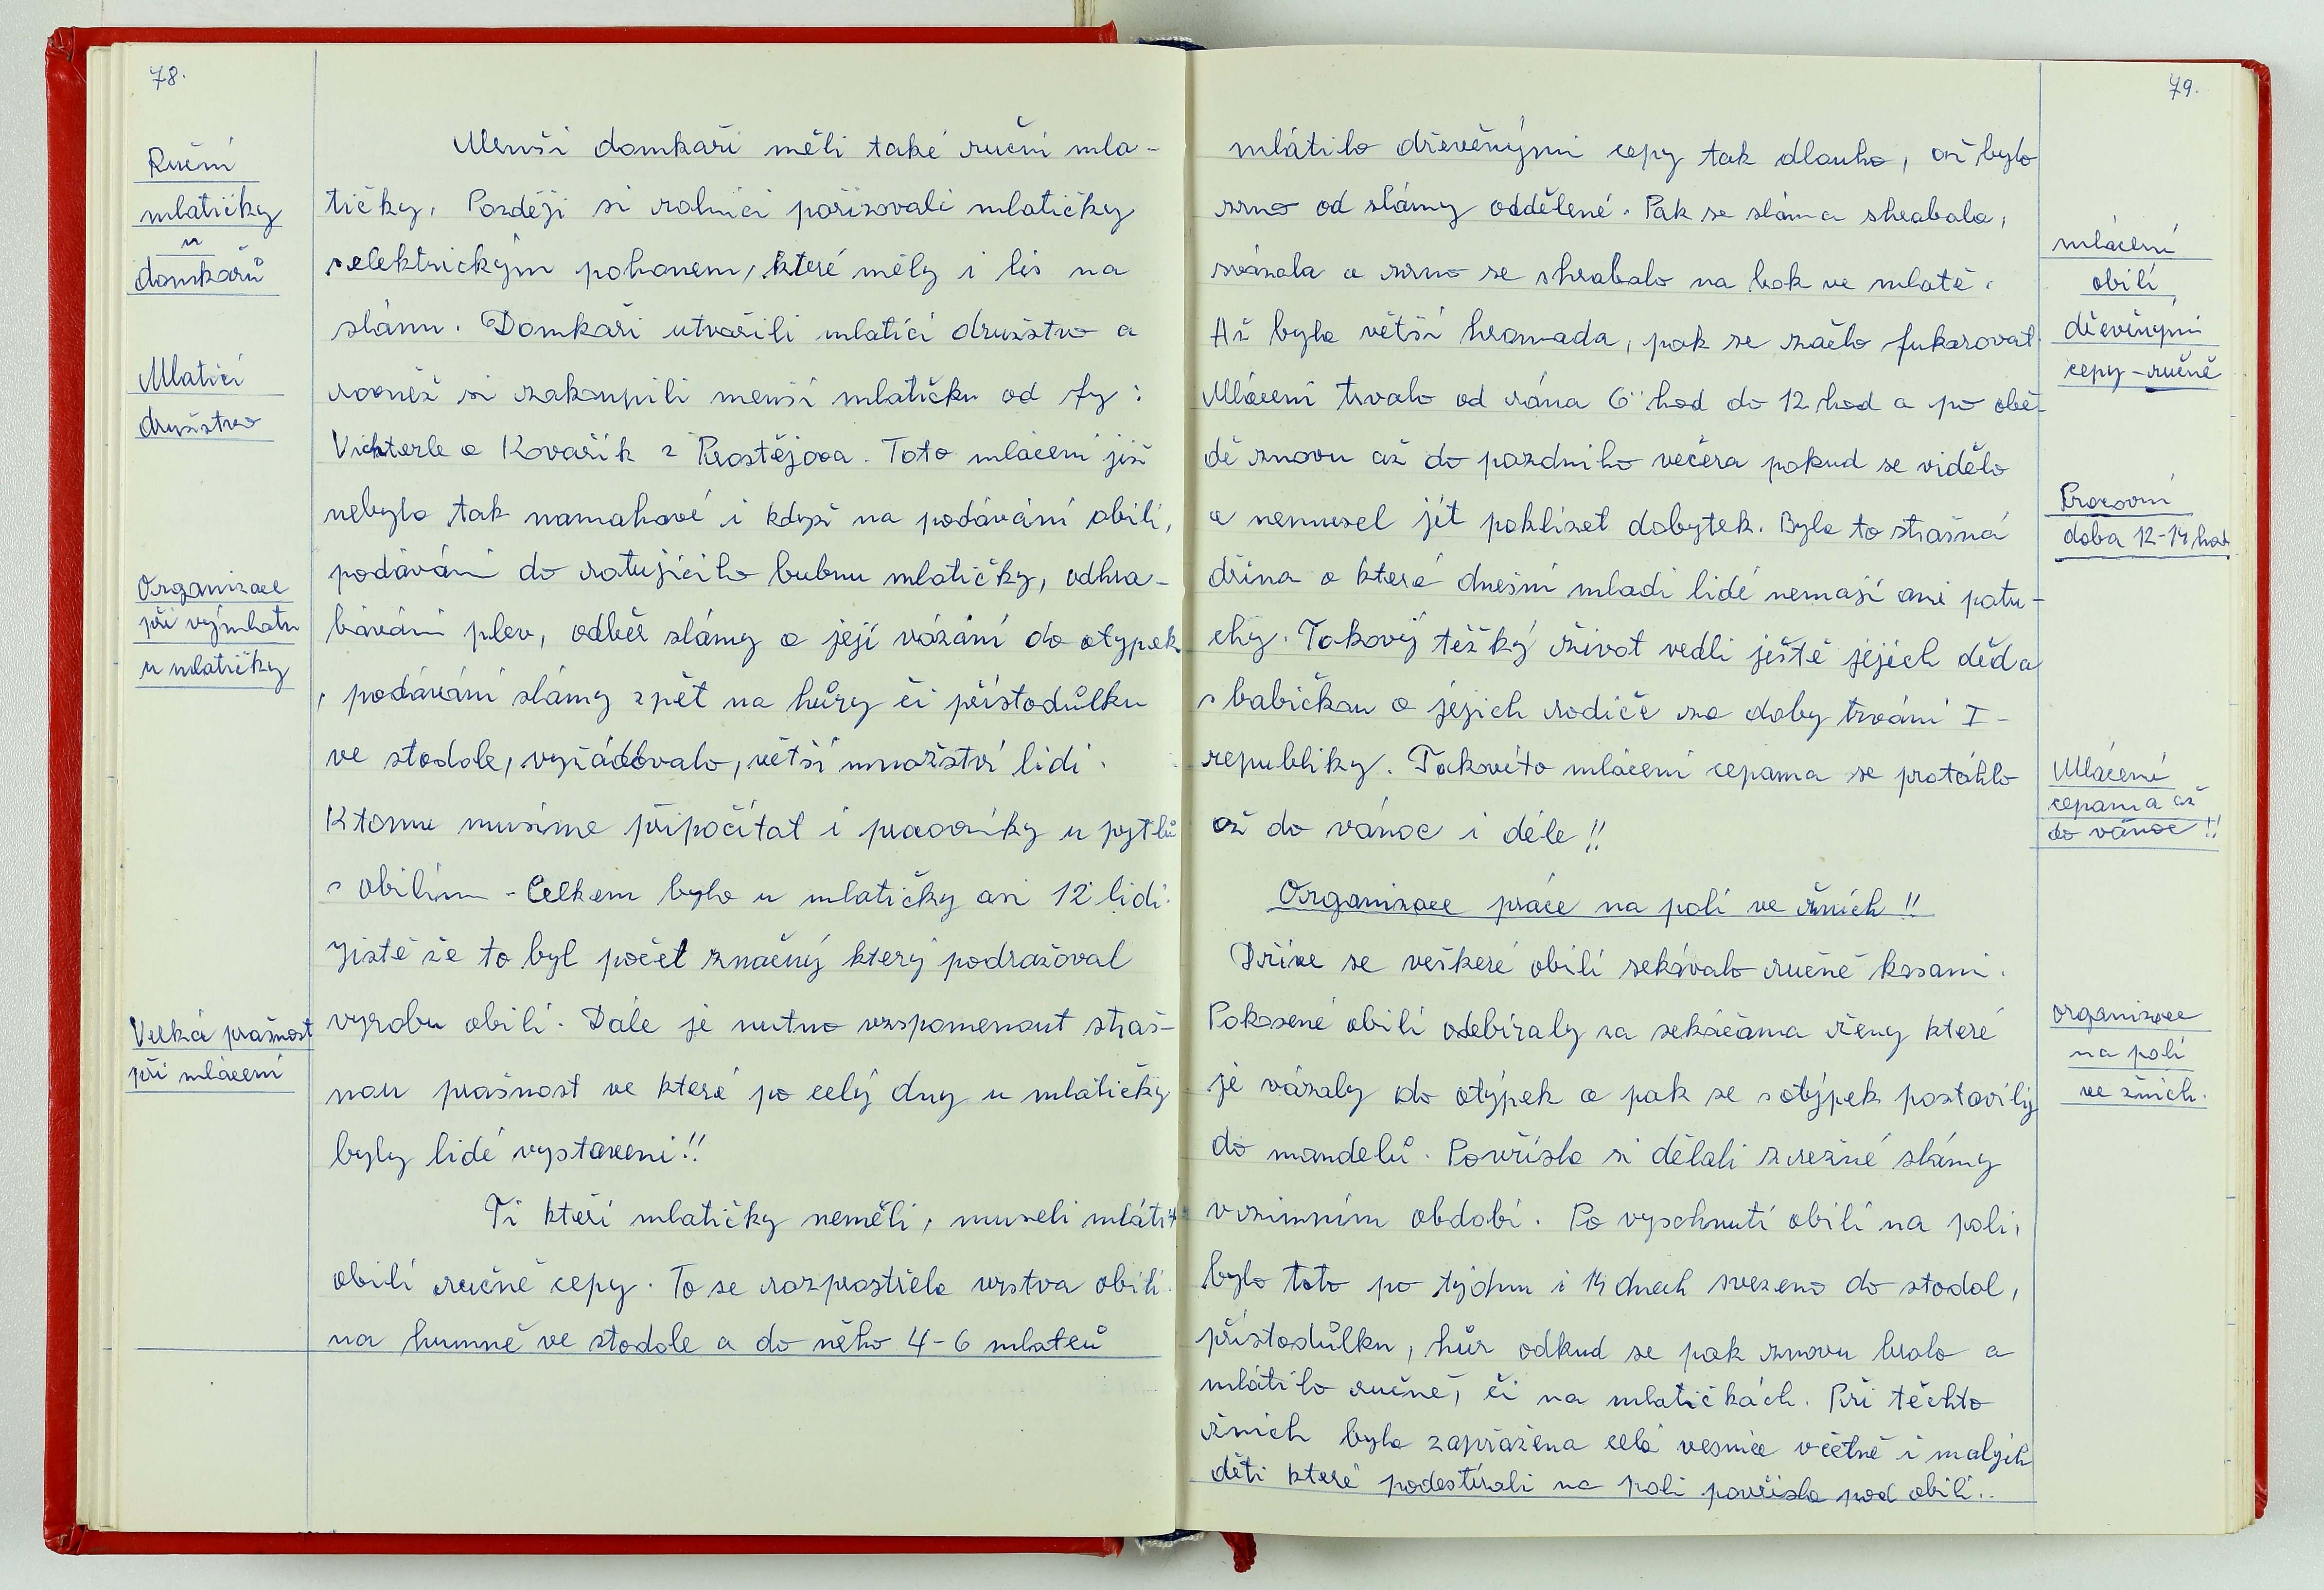 78.
Ruční
mlatičky
u
domkařů
Mlatící
družstvo
Organizace
při výmlatu
u mlatičky
Velká prašnost
při mlácení
Menší domkaři měli také ruční mla-
tičky. Později si rolníci pořizovali mlatičky
s elektrickým pohonem, které měly i lis na
slámu. Domkaři utvořili mlatící družstvo a
rovněž si zakoupili menší mlatičku od fy:
Vichterle a Kovařík z Prostějova. Toto mlácení již
nebylo tak namahavé i když na podávání obilí,
podávání do rotujícího bubnu mlatičky, odhra-
bávání plev, odběr slámy a její vázání do otypek
, podávání slámy zpět na hůry či přístodůlku
ve stodole, vyžádovalo, větší množství lidí.
K tomu musíme připočítat i pracovníky u pytlů
s obilím. Celkem bylo u mlatičky asi 12 lidí.
Jistě že to byl počet značný který podražoval
vyrobu obilí. Dále je nutno vzspomenout straš-
nou prašnost ve které po celý dny u mlatičky
byly lidé vystaveni!!
Ti kteří mlatičky neměli, museli mlátit
obilí ručně cepy. To se rozprostřela vrstva obilí
na humně ve stodole a do něho 4-6 mlatců
79.
mlátilo dřevěnými cepy tak dlouho, až bylo
zrno od slámy oddělené. Pak se sláma shrabala,
svázala a zrno se shrabalo na bok ve mlatě.
Až byla větší hromada, pak se začlo fukarovat.
Mlácení trvalo od rána 6 hod do 12 hod a po obě-
dě znovu až do pozdního večera pokud se vidělo
a nemusel jít poklízet dobytek. Byla to strašná
dřina o které dnešní mladí lidé nemají ani potu-
chy. Takový těžký život vedli ještě jejich děda
s babičkou a jejich rodiče za doby trvání I-
republiky. Takovíto mlácení cepama se protáhlo
až do vánoc i déle!!
Organizace práce na polí ve žních!!
Dříve se veškeré obilí sekávalo ručně kosami.
Pokosené obilí odebíraly za sekáčama ženy které
je vázaly do otýpek a pak se s otýpek postavily
do mandelů. Povřísla si dělali z režné slámy
v zimním období. Po vyschnutí obilí na poli,
bylo toto po týdnu i 14 dnech svezeno do stodol,
přístodůlku, hůr odkud se pak znovu bralo a
mlátilo ručně, či na mlatičkách. Při těchto
žních byla zapřažena celá vesnice včetně i malých
dětí které podestírali na poli povřísla pod obilí..
mlácení
obilí
dřevěnými
cepy - ručně
Pracovní
doba 12-14 hod
Mlácení
cepama až
do vánoc!!
organizace
na polí
ve žních.